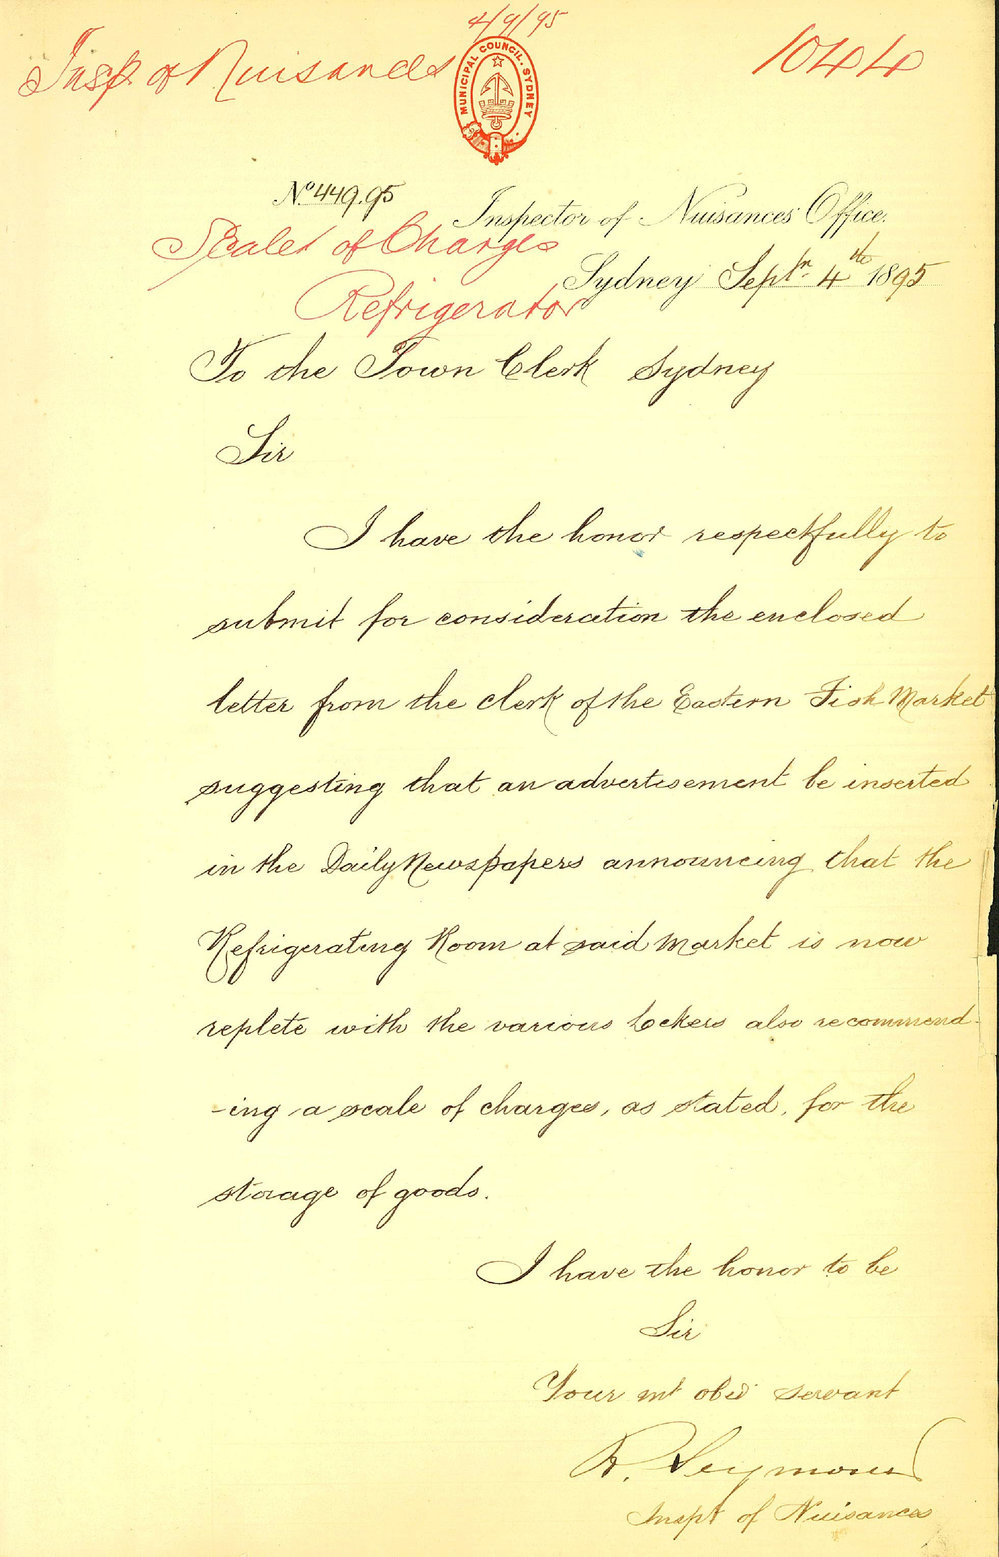 4/9/95
Insp. of Nuisances
1044
MUNICIPAL COUNCIL. SYDNEY
No 449.95
Inspector of Nuisances' Office.
Scales of Charges
Sydney Septr. 4th 1895
Refrigerator
To the Town Clerk Sydney
Sir
I have the honor respectfully to
submit for consideration the enclosed
letter from the clerk of the Eastern Fish Market
suggesting that an advertisement be inserted
in the Daily Newspapers announcing that the
Refrigerating Room at said Market is now
replete with the various lockers also recommend-
-ing a scale of charges, as stated, for the
storage of goods.
I have the honor to be
Sir
Your mt obed servant
R. Seymour
Inspt of Nuisances